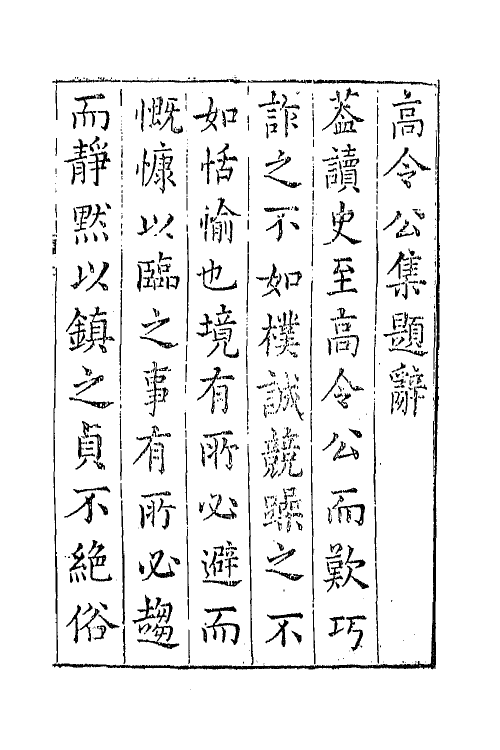 高令公集題辭
葢讀史至高令公而歎巧
詐之不如樸誠競躁之不
如恬愉也境有所必避而
慨慷以臨之事有所必趨
而靜默以鎮之貞不絕俗